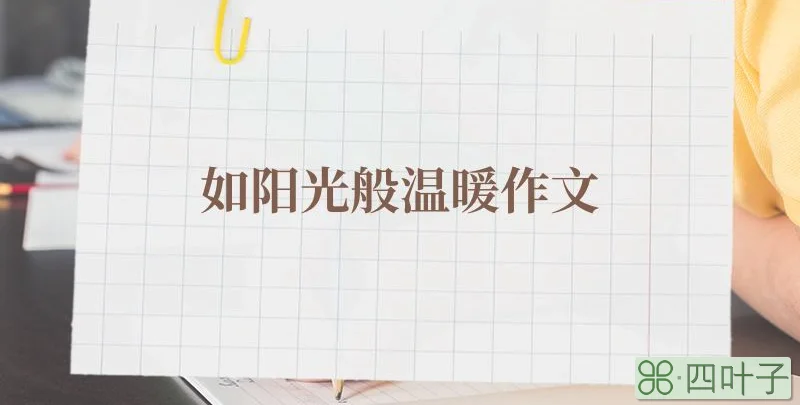 如阳光般温暖作文
四叶子